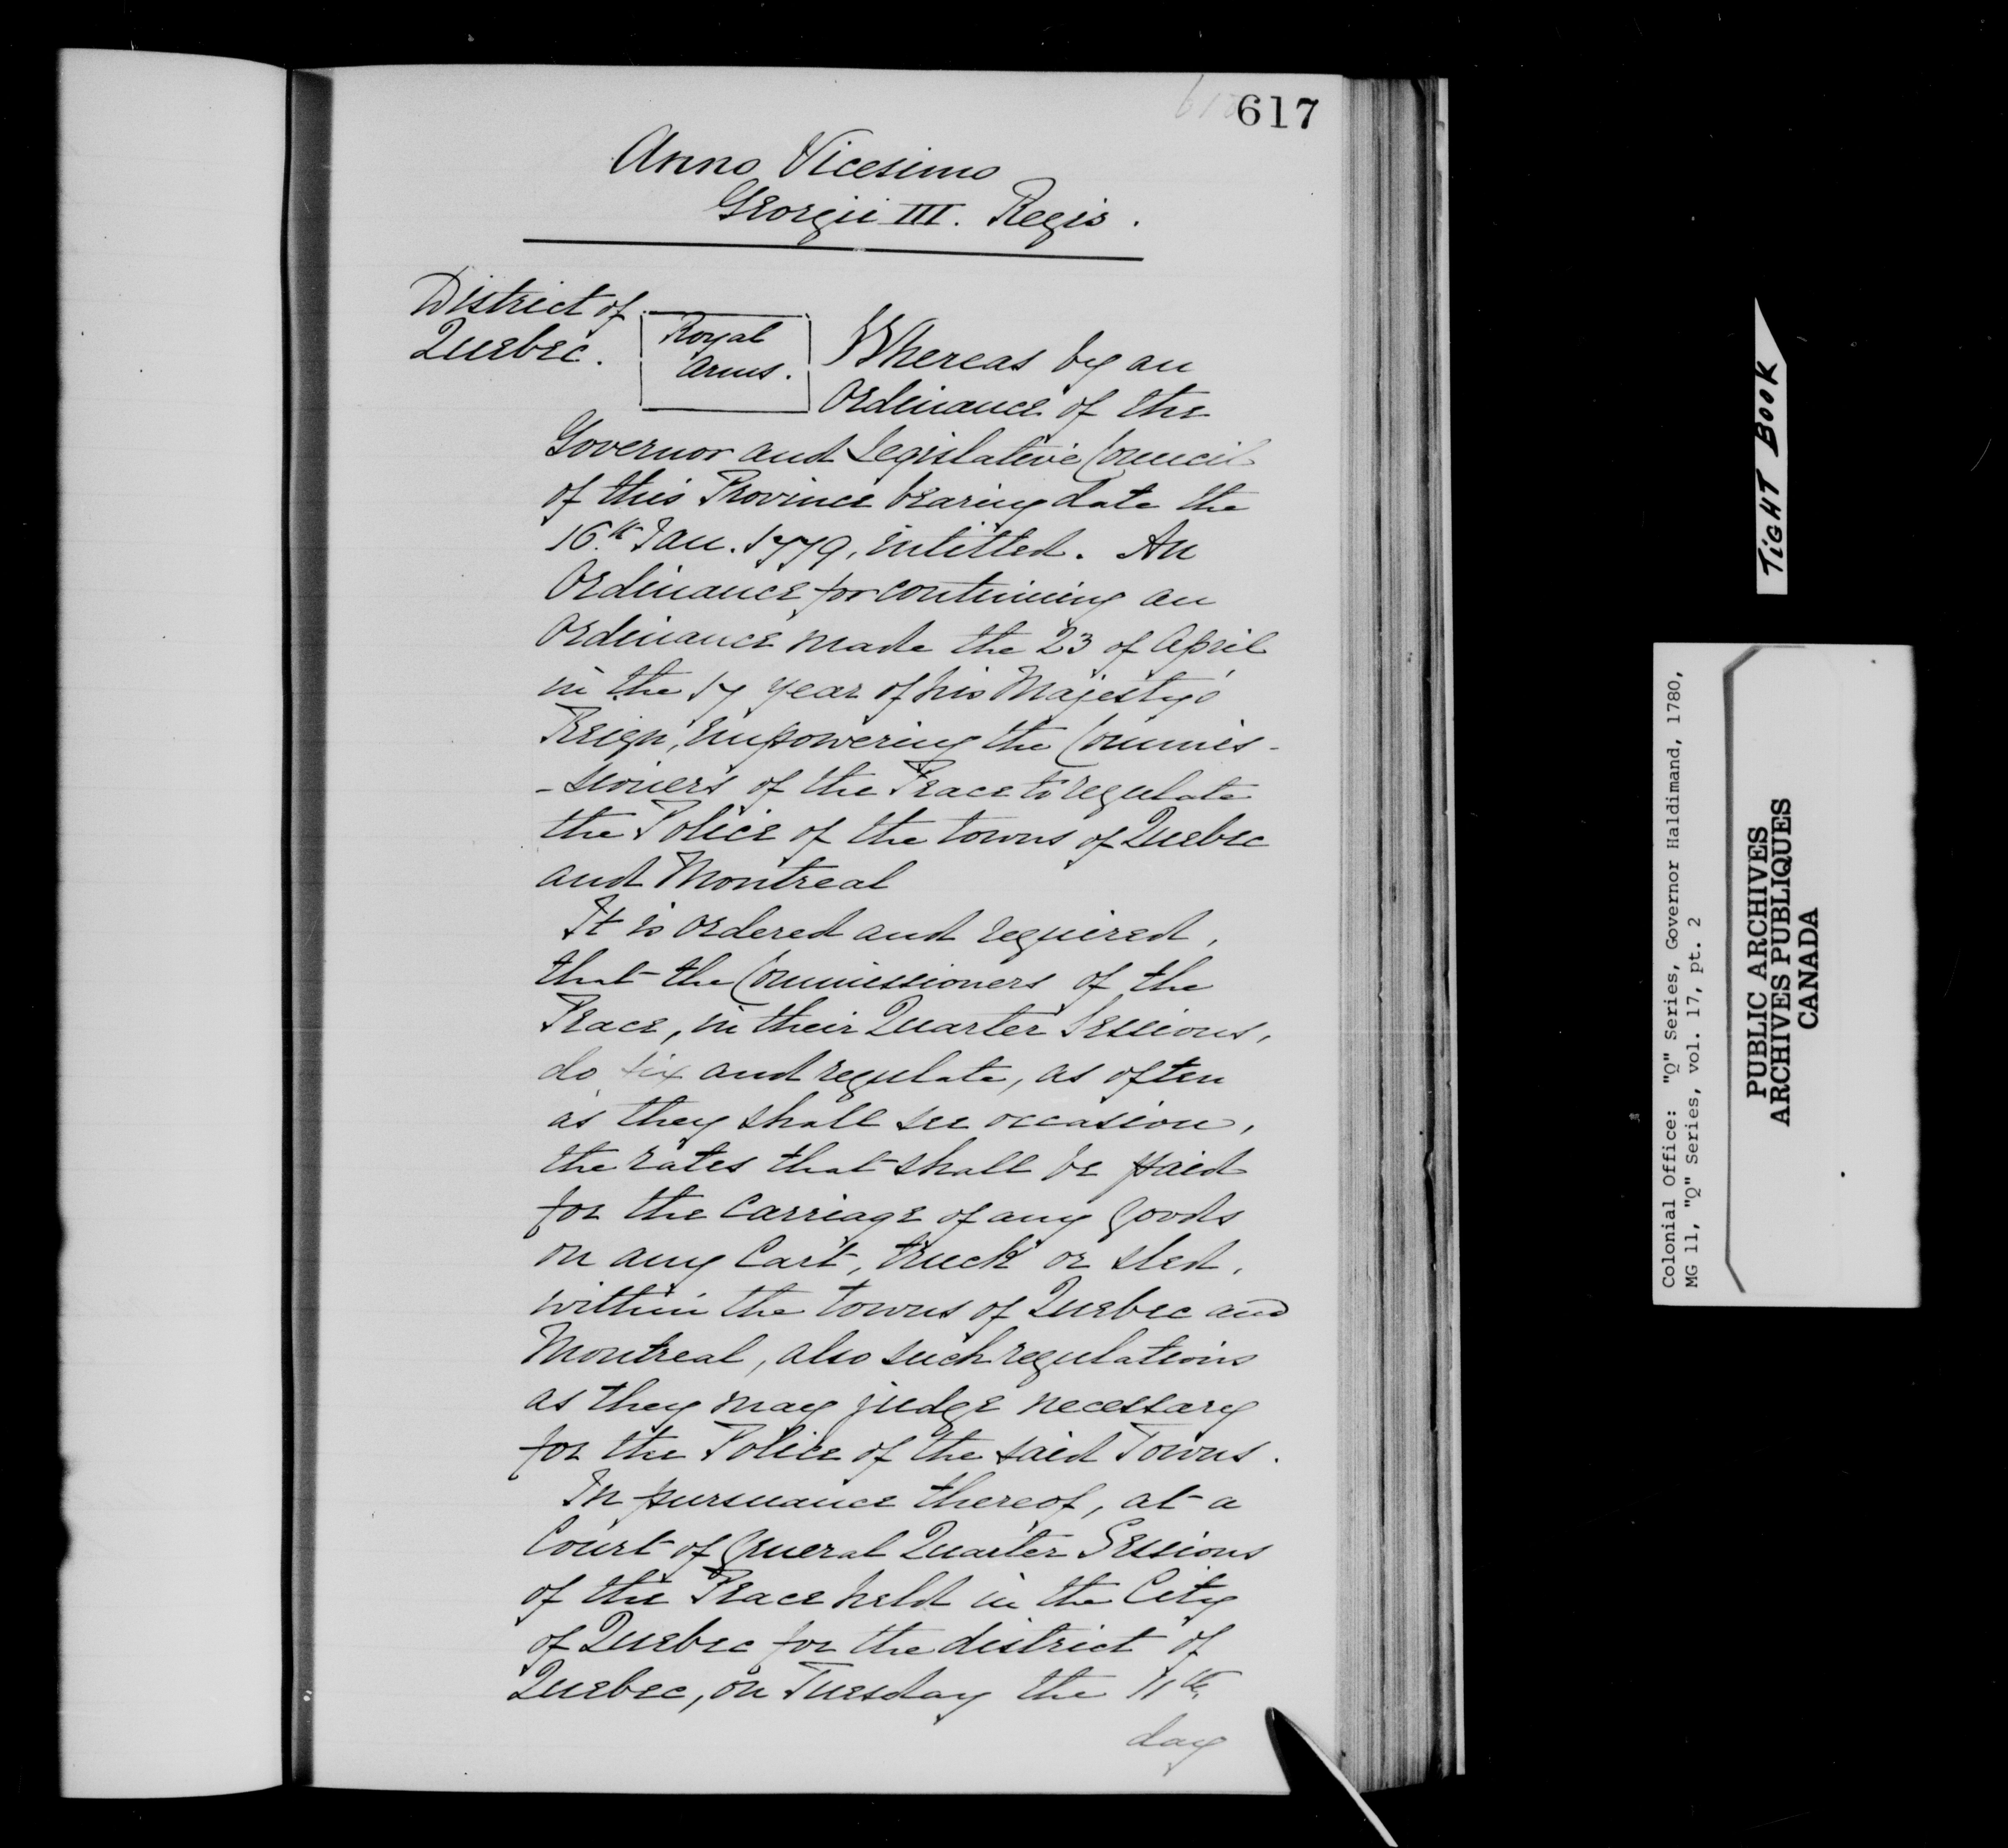 617
Anno Vicesimo
Georgii III. Regis.
District of
Quebec.
Royal
Arms.
Whereas by an
Ordinance of the
Governor and Legislative Council
of this Province bearing date the
16.th Jan. 1779, intitled. An
Ordinance for continuing an
Ordinance made the 23 of April
in the 17 year of his Majesty's
Reign, empowering the Commis-
-sioners of the Peace to regulate
the Police of the towns of Quebec
and Montreal
It is ordered and required,
that the Commissioners of the
Peace, in their Quarter Sessions,
do fix and regulate, as often
as they shall see occasion,
the rates that shall be paid
for the Carriage of any Goods
on any Cart, truck or sled,
within the towns of Quebec and
Montreal, also such regulations
as they may judge necessary
for the Police of the said Towns.
In pursuance thereof, at a
Court of General Quarter Sessions
of the Peace held in the City
of Quebec for the district of
Quebec, on Tuesday the 11th
day
TIGHT BOOK
Colonial Office: "Q" Series, Governor Haldimand, 1780,
MG 11, "Q" Series, vol. 17, pt. 2
PUBLIC ARCHIVES
ARCHIVES PUBLIQUES
CANADA